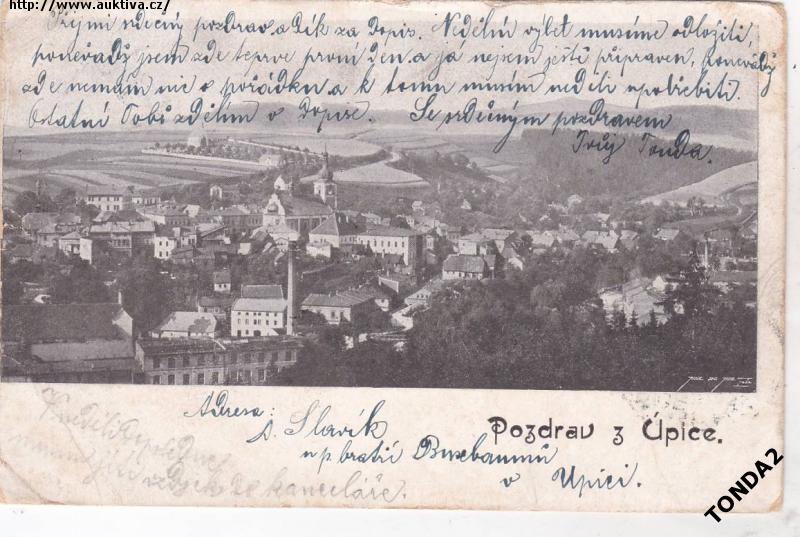 http://www.auktiva.cz/
Můj srdečný pozdrav a dík za Dopis. Nedělní výlet musíme odložiti,
poněvadž jsem zde teprve první den a já nejsem ještě připraven, poněvadž
zde nemám nic v pořádku a k tomu musím neděli upotřebiti.
Ostatní Tobě zdělím v Dopise. Se srdečným pozdravem
Tvůj Tonda.
Adresa:
A. Slavík
u p. bratří Buxbaumů
v Úpici.
Pozdrav z Úpice.
V neděli dopoledne
musím jíti
ze kanceláře.
TONDA2